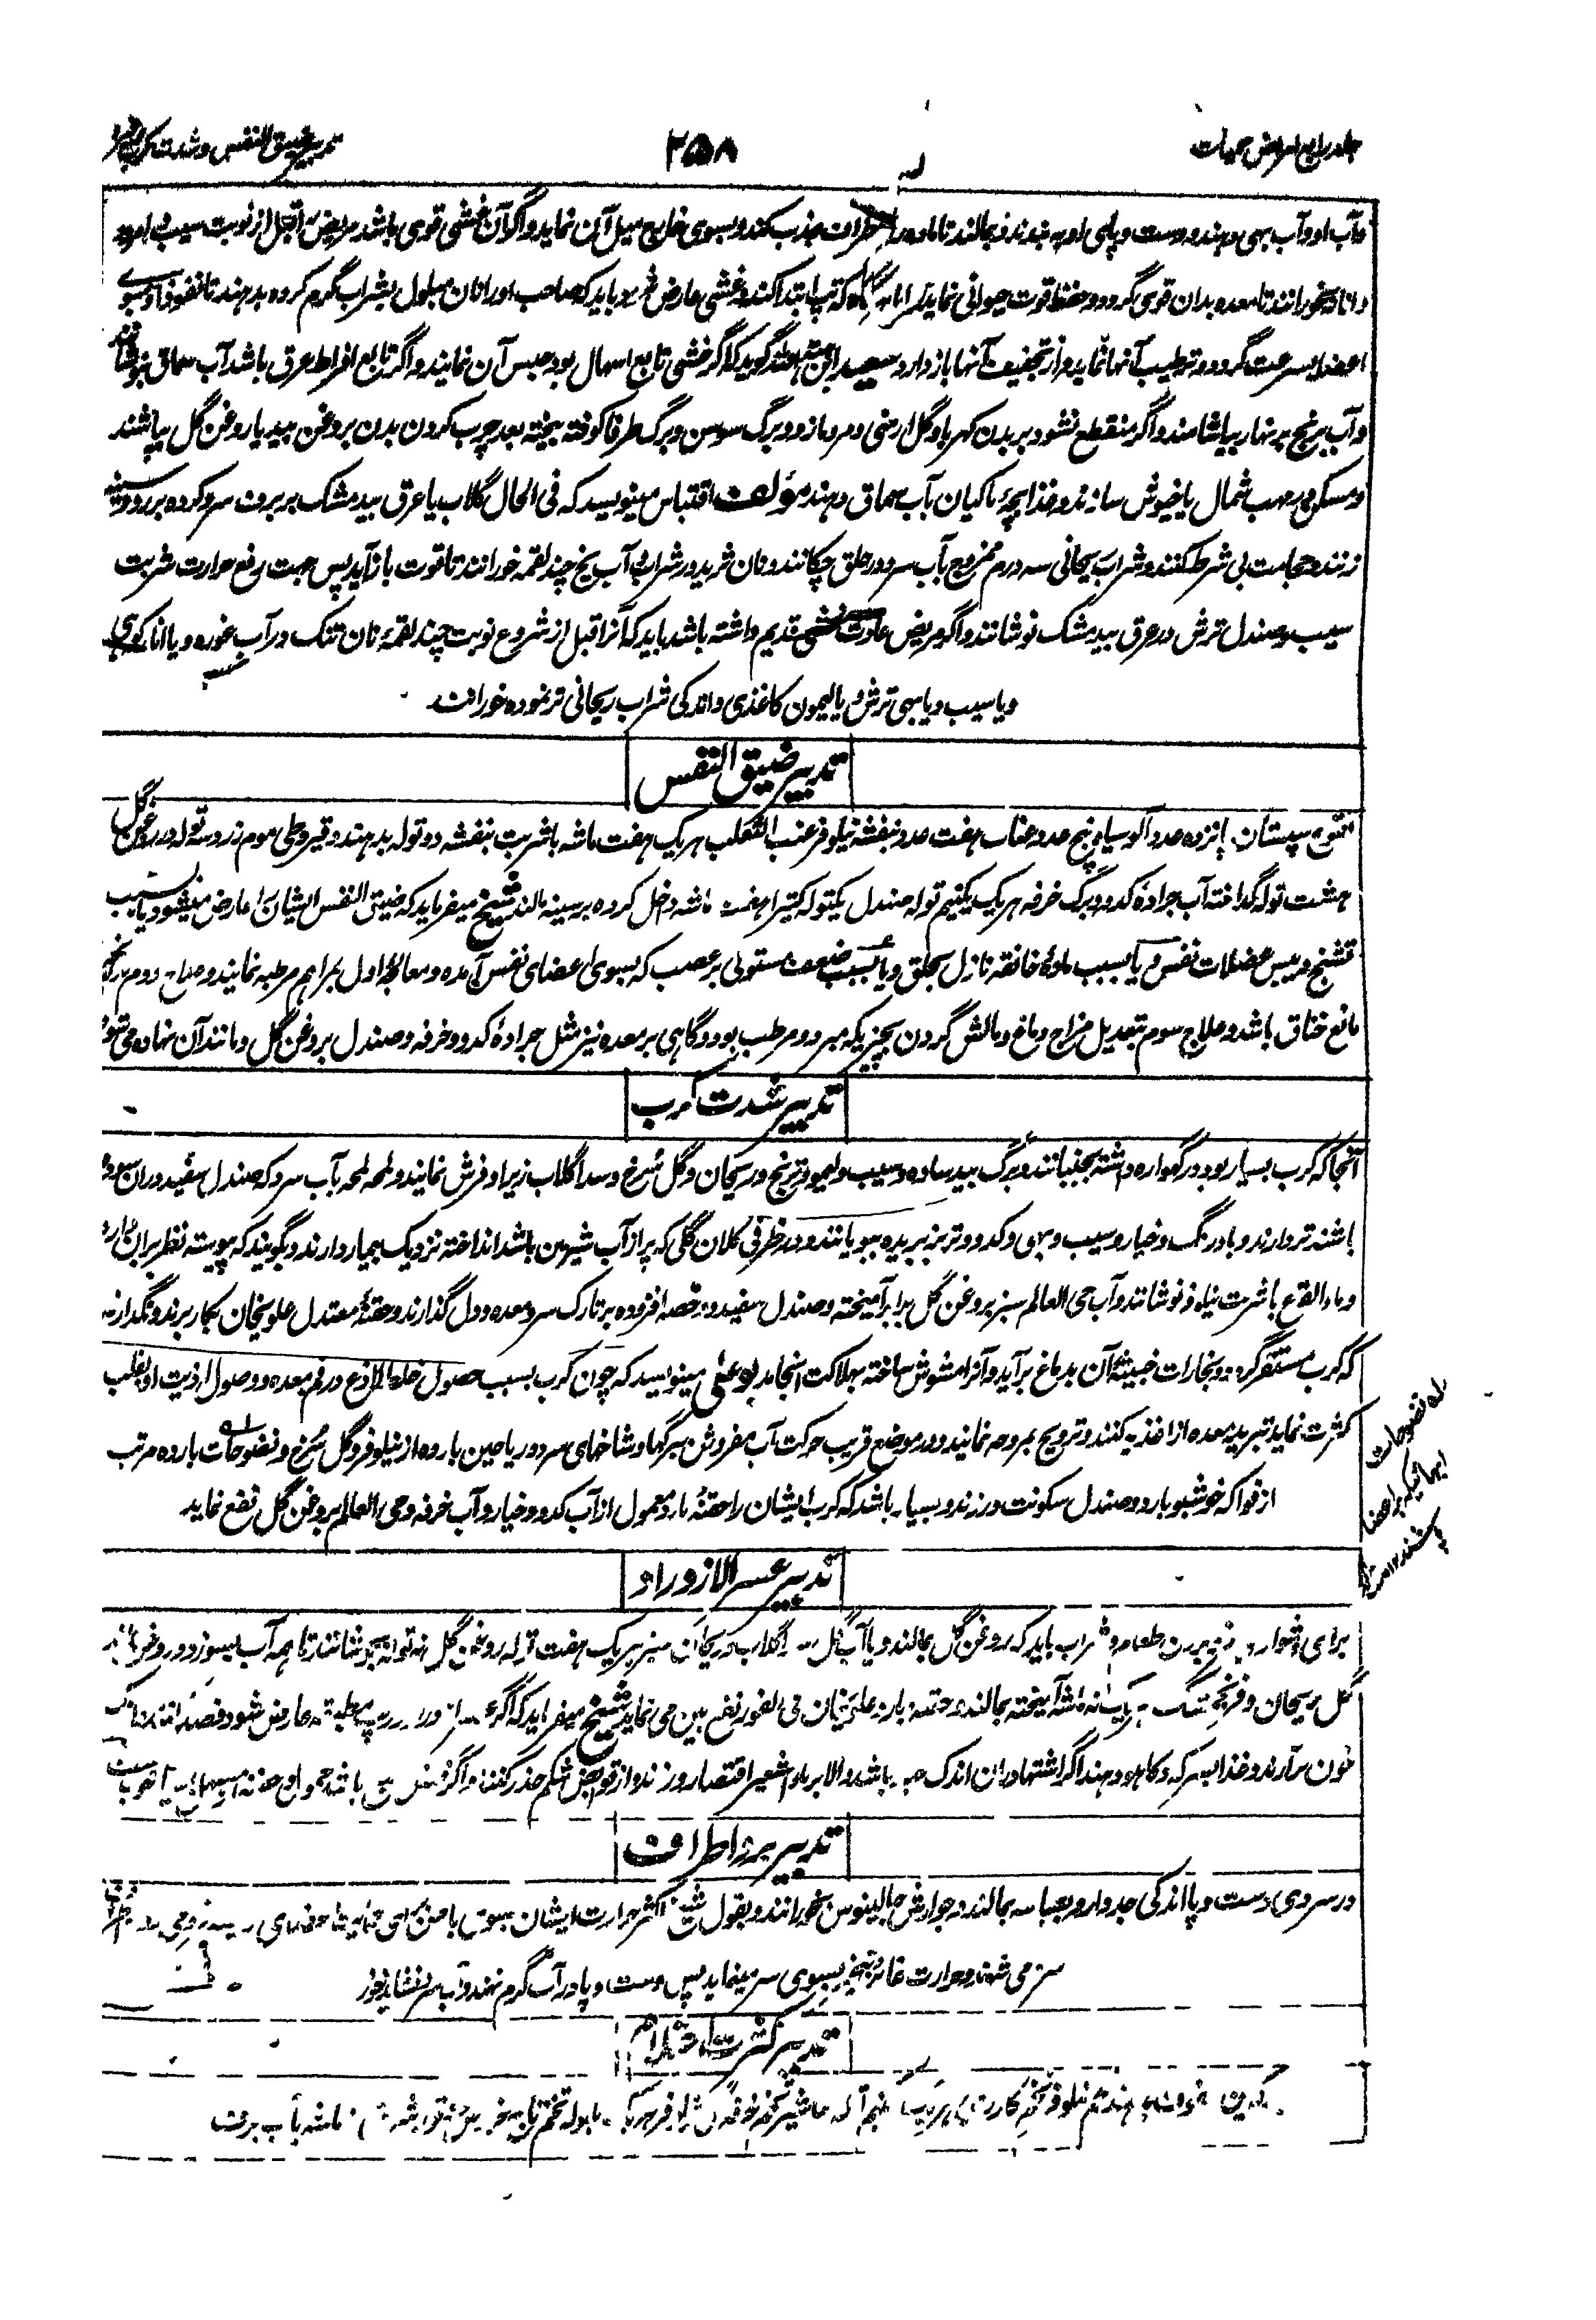 جلد رابع امراض حمیات
۲۵۸
تدبیر ضیق النفس و شدت کرب
و آب او و آب بهی دهند و دست و پای او به بندند و بمالند تا ماده را باطراف جذب کند و بسوی خارج میل آن نماید و اگر آن غشی قوی باشد مریض را قبل از نوبت سیب و امرود
و انار بخورانند تا معده بدان قوی گردد و حفظ قوت حیوانی نماید که تپ ابتدا کند و غشی عارض شود باید که صاحب او را نان مبلول بشراب گرم کرده بدهند تا نفوذ او بسوی
اعضا بسرعت گردد و ترطیب آنها نماید و از تجفیف آنها باز دارد سعید گوید که اگر غشی تابع اسهال بود حبس آن نمایند و اگر تابع افراط عرق باشد آب سماق بنوشانند
و آب برنج بر نهار بیاشامند و اگر منقطع نشود بر بدن کهربا و گل ارمنی و مرو مازو و برگ سوسن و برگ طرفا کوفته بیخته بعد چرب کردن بدن بروغن بید یا روغن گل بپاشند
و مسکن مهب شمال یا خیوش سازند و غذا بچهٔ ماکیان بآب سماق دهند مؤلف اقتباس مینویسد که فی الحال گلاب یا عرق بیدمشک ببرف سرد کرده بر رو و سینه
زنند و حجامت بی شرط کنند و شراب ریحانی سه درم ممزوج بآب سرد در حلق چکانند و نان ثرید در شراب و آب یخ چند لقمه خورانند تا قوت باز آید پس جهت رفع حرارت شربت
سیب و صندل ترش در عرق بیدمشک نوشانند و اگر مریض عادت غشی قدیم داشته باشد باید که آنرا قبل از شروع نوبت چند لقمهٔ نان تنک در آب غوره و یا انار
و یا سیب و یا بهی ترش و یا لیمون کاغذی و اندکی شراب ریحانی تر نموده خورانند
تدبیر ضیق النفس
نقوع سپستان پانزده عدد آلو سیاه پنج عدد عناب هفت عدد بنفشه نیلوفر عنب الثعلب هر یک هفت ماشه باشربت بنفشه دو توله بدهند و قیروطی موم زرد سه توله در روغن گل
هشت توله گداخته آب جرادهٔ کدو و برگ خرفه هر یک یکنیم توله صندل یکتوله کتیرا هفت ماشه داخل کرده بر سینه مالند شیخ میفرماید که ضیق النفس ایشان را عارض میشود یا بسبب
تشنج و یبس عضلات نفس و یا بسبب مادهٔ خانقه نازل بحلق و یا بسبب ضعف مستولی بر عصب که بسوی اعضای نفس آمده و معالجهٔ اول بمراهم مرطبه نمایند و علاج دوم
مانع خناق باشد و علاج سوم تعدیل مزاج دماغ و مالش گردن بچیزیکه مبرد و مرطب بود و گاهی بر معده نیز مثل جرادهٔ کدو و خرفه و صندل بروغن گل و مانند آن نهاده می شود
تدبیر شدت کرب
آنجا که کرب بسیار بود در گهواره داشته بجنبانند و برگ بید ساده و سیب و لیمو و ترنج و ریحان و گل سرخ و سداگلاب زیر او فرش نمایند و لمحه لمحه بآب سرد که صندل سفید دران سوده
باشند تر دارند و بادرنگ و خیار و سیب و بهی و کدو و تربز بریده ببویانند و در ظرفی کلان گلی که پر از آب شیرین باشد انداخته نزدیک بیمار دارند و بگویند که پیوسته نظر بران دارد
و ماء القرع با شربت نیلوفر نوشانند و آب حی العالم سبز بروغن گل برابر آمیخته و صندل سفید دو حصه افزوده بر تارک سر و معده و دل گذارند و حقنهٔ معتدل علویخان بکار برند و نگذارند
که کرب مستقر گردد و بخارات خبیثهٔ آن بدماغ برآید و آنرا مشوش ساخته بهلاکت انجامد بو علی مینویسد که چون کرب بسبب حصول خلط لاذع در فم معده و وصول اذیت او بقلب
کثرت نماید تبرید معده از اغذیه کنند و ترویح بمروحه نمایند و در موضع قریب حرکت آب مفروش ببرگها و شاخهای سرد و ریاحین بارده از نیلوفر و گل سرخ و نضوحات بارده مرتب
از فواکه خوشبو بارد و صندل سکونت ورزند و بسیار باشد که کرب ایشان را حقنهٔ بارد معمول از آب کدو و خیار و آب خرفه و حی العالم بروغن گل نفع نماید
له نضوحات
تدبیر عسر الازوراد
برای دشوار فرو بردن طعام و شراب باید که روغن گل بمالند و یا آب گلاب و ریحان سبز هر یک هفت توله روغن گل نه توله بجوشانند تا همه آب بسوزد و روغن بماند
گل ریحان هر یک نه ماشه آمیخته بمالند و حقنه بارد علویخان فی الفور نفع بین می نماید شیخ میفرماید که اگر عارض شود فصد
خون برآرند و غذا بسرکه و کاهو دهند اگر اشتها دران اندک باشد والا بر ماء الشعیر اقتصار ورزند و از قوابض شکم حذر کنند و اگر
تدبیر برد اطراف
در سردی دست و پا اندکی جدوار و بعباسه بمالند و جوارش جالینوس بخورانند و بقول شیخ اکثر حرارت ایشان بسوی باطن
سرد می شوند و حرارت بتبخیر بسوی سر مینماید پس دست و پا در آب گرم نهند و آب
تدبیر کثرت احتلام